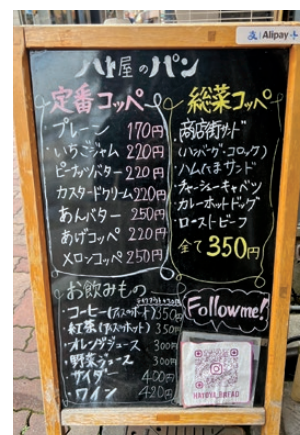 Alipay
ハト屋のパン
定番コッペ
・プレーン 170円
・いちごジャム 220円
・ピーナッツバター 220円
・カスタードクリーム 220円
・あんバター 250円
・あげコッペ 220円
・メロンコッペ 250円
総菜コッペ
・商店街サンド
(ハンバーグ・コロッケ)
・ハムたまサンド
・チャーシューキャベツ
・カレーホットドッグ
・ローストビーフ
全て350円
お飲みもの
・コーヒー(アイス・ホット) 350円
・紅茶(アイス・ホット) 350円
・オレンジジュース 300円
・野菜ジュース 300円
・サイダー 400円
・ワイン 420円
Follow me!
HATOYA_BREAD